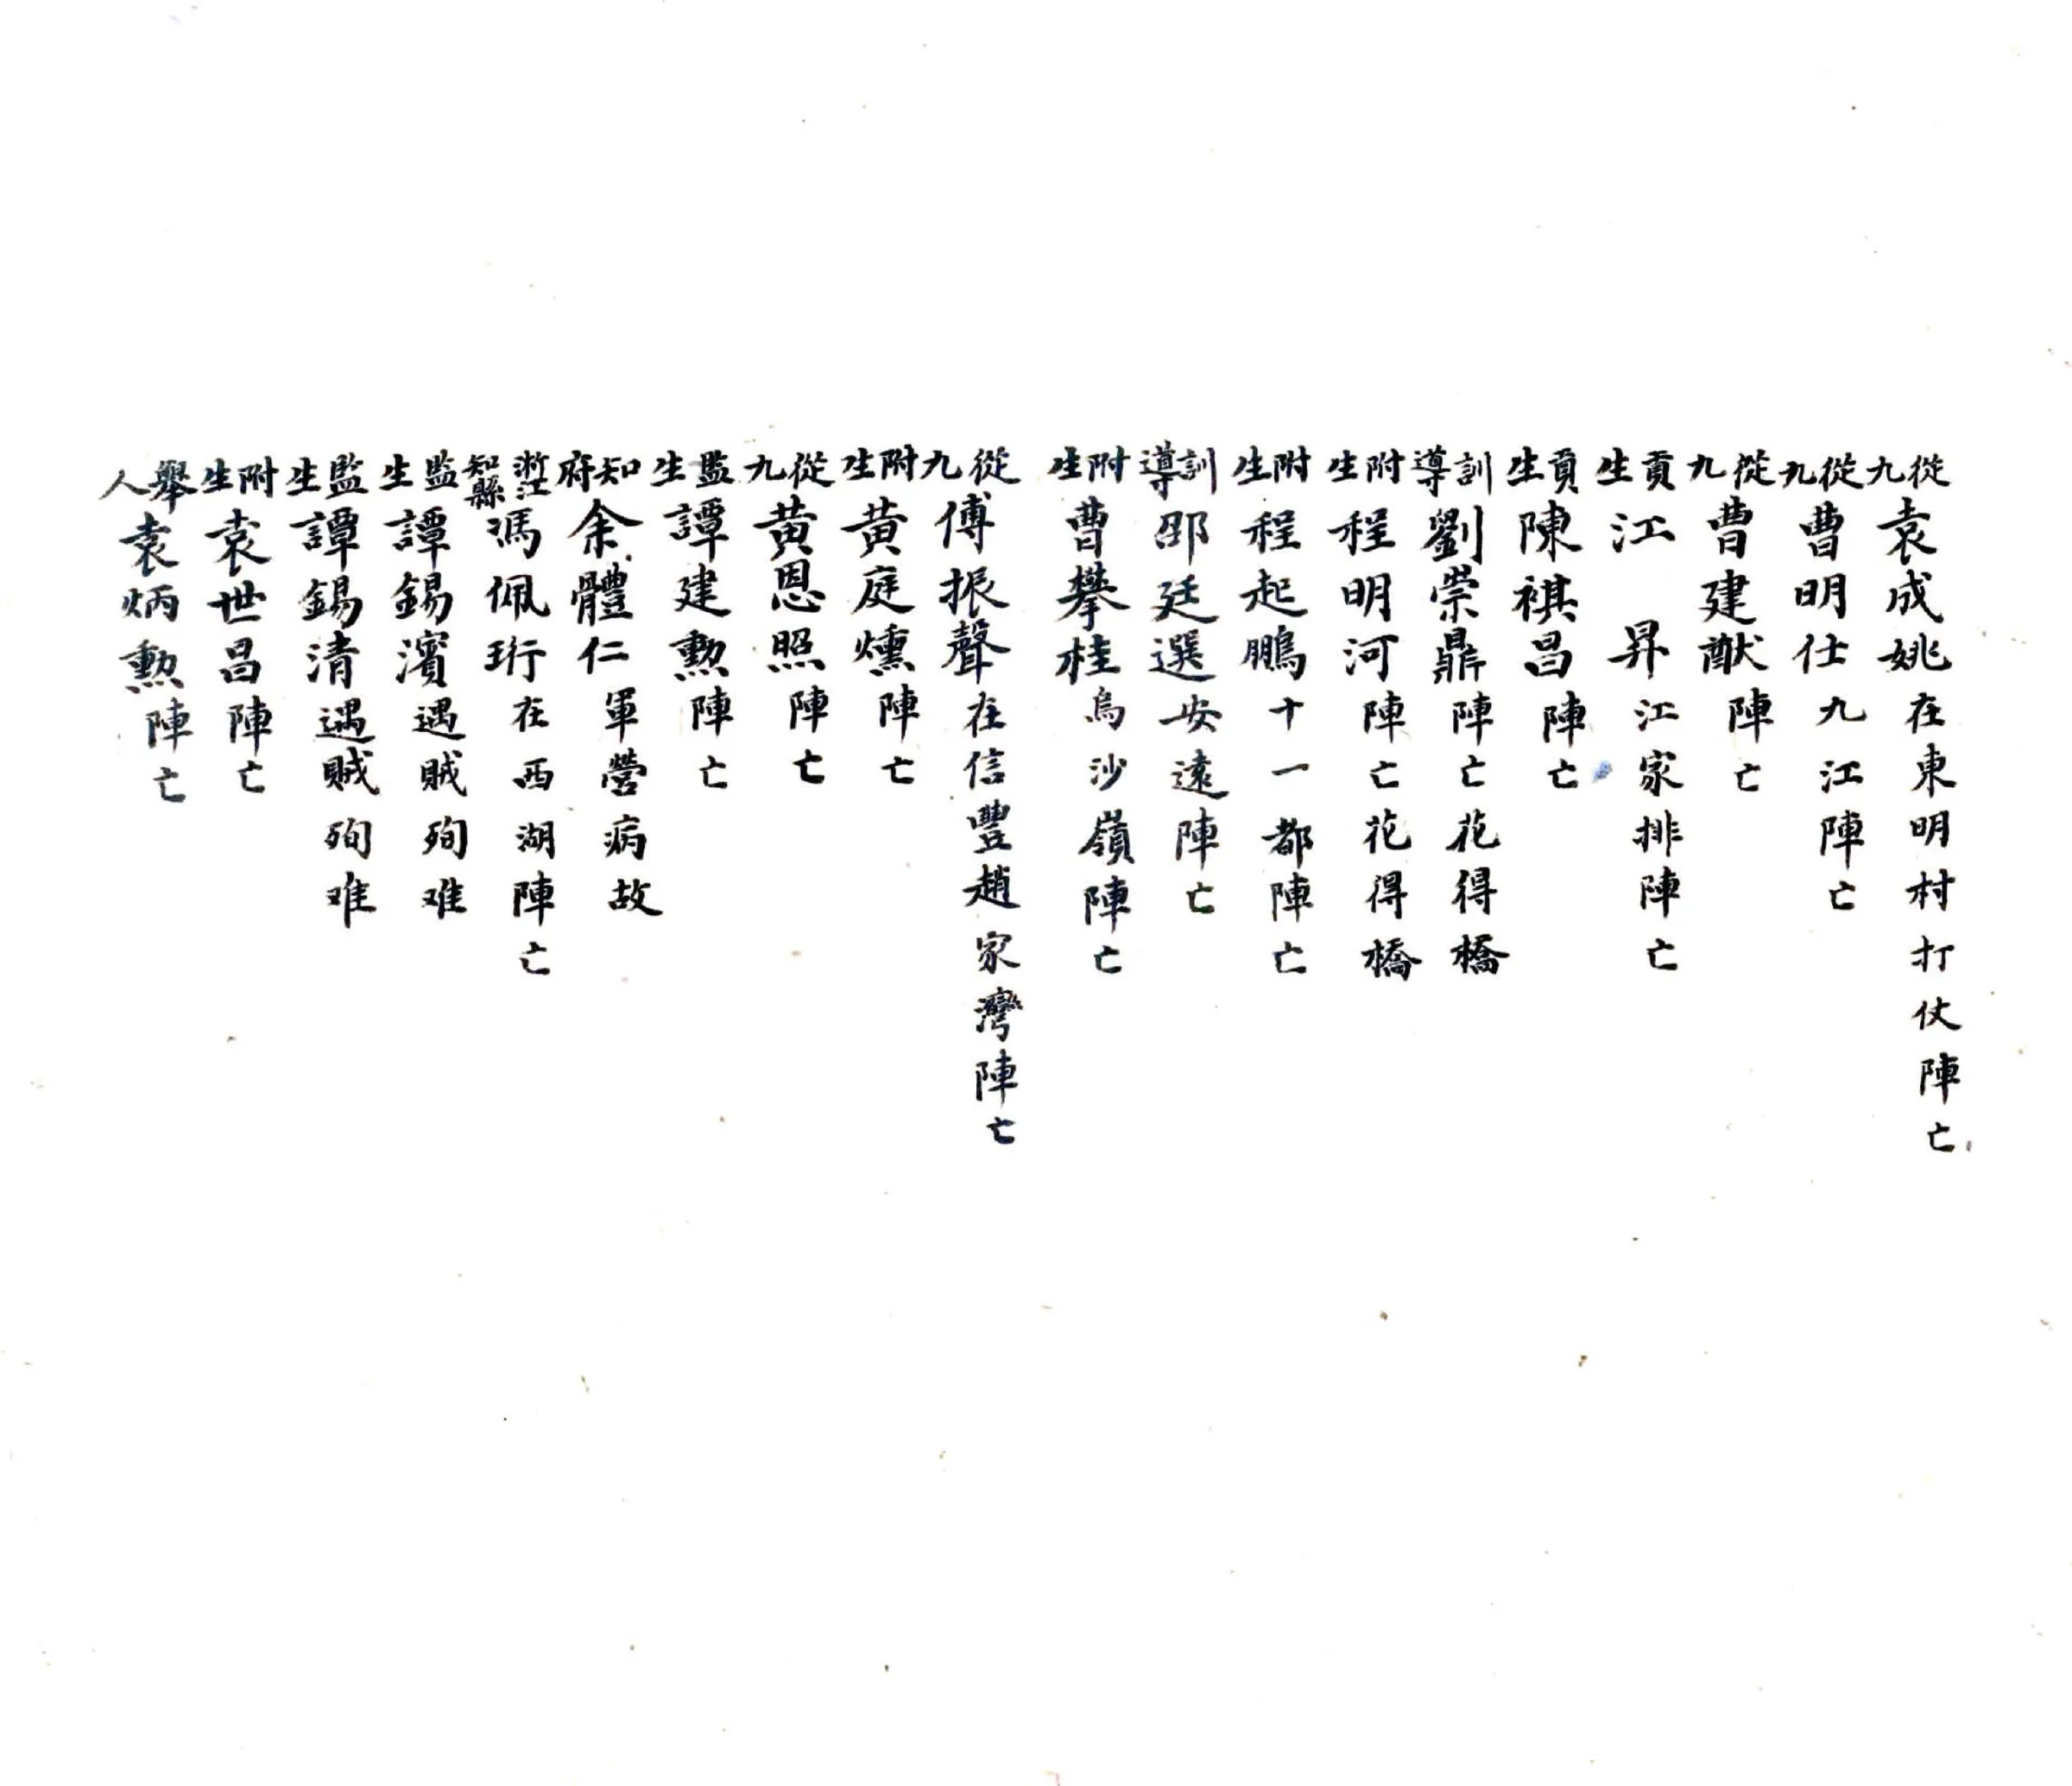 從九袁成姚在東明村打仗陣亡
從九曹明仕九江陣亡
從九曹建猷陣亡
貢生江昇江家排陣亡
貢生陳祺昌陣亡
訓導劉崇鼎陣亡花得橋
附生程明河陣亡花得橋
附生程起鵬十一都陣亡
訓導邵廷選安遠陣亡
附生曹攀桂烏沙嶺陣亡
從九傅振聲在信豐趙家灣陣亡
附生黃庭燻陣亡
從九黃恩照陣亡
監生譚建勲陣亡
知府余體仁軍營病故
浙江知縣馮佩珩在西湖陣亡
監生譚錫濱遇賊殉难
監生譚錫清遇賊殉难
附生袁世昌陣亡
舉人袁炳勲陣亡